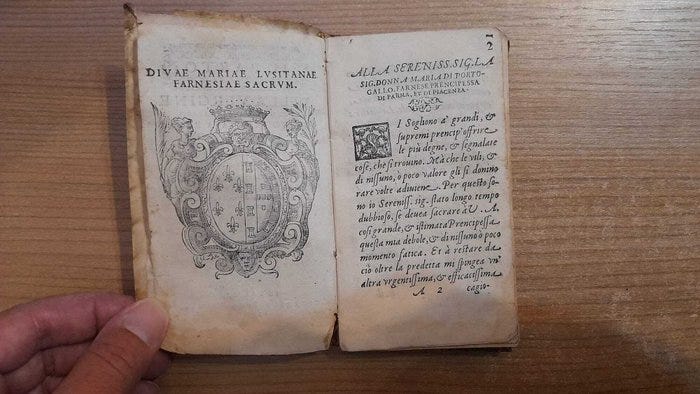 DIVAE MARIAE LVSITANAE
FARNESIAE SACRVM.
2
ALLA SERENISS. SIG. LA
SIG. DONNA MARIA DI PORTO-
GALLO, FARNESE PRENCIPESSA
DI PARMA, ET DI PIACENZA.
SI Sogliono a' grandi, &
supremi prencip' offrire
le più degne, & segnalate
cose, che si trouino. Mà che le vili, &
di nissuno, ò poco valore gli si donino
rare volte adiuiene. Per questo so-
no io Sereniss. sig. stato longo tempo
dubbioso, se deuea sacrare à V. A.
cosi grande, & istimata Prencipessa
questa mia debole, & di nissuno ò poco
momento fatica. Et à restare da
ciò oltre la predetta mi spingea vn'
altra vrgentissima, & efficacissima
A 2 cagio-